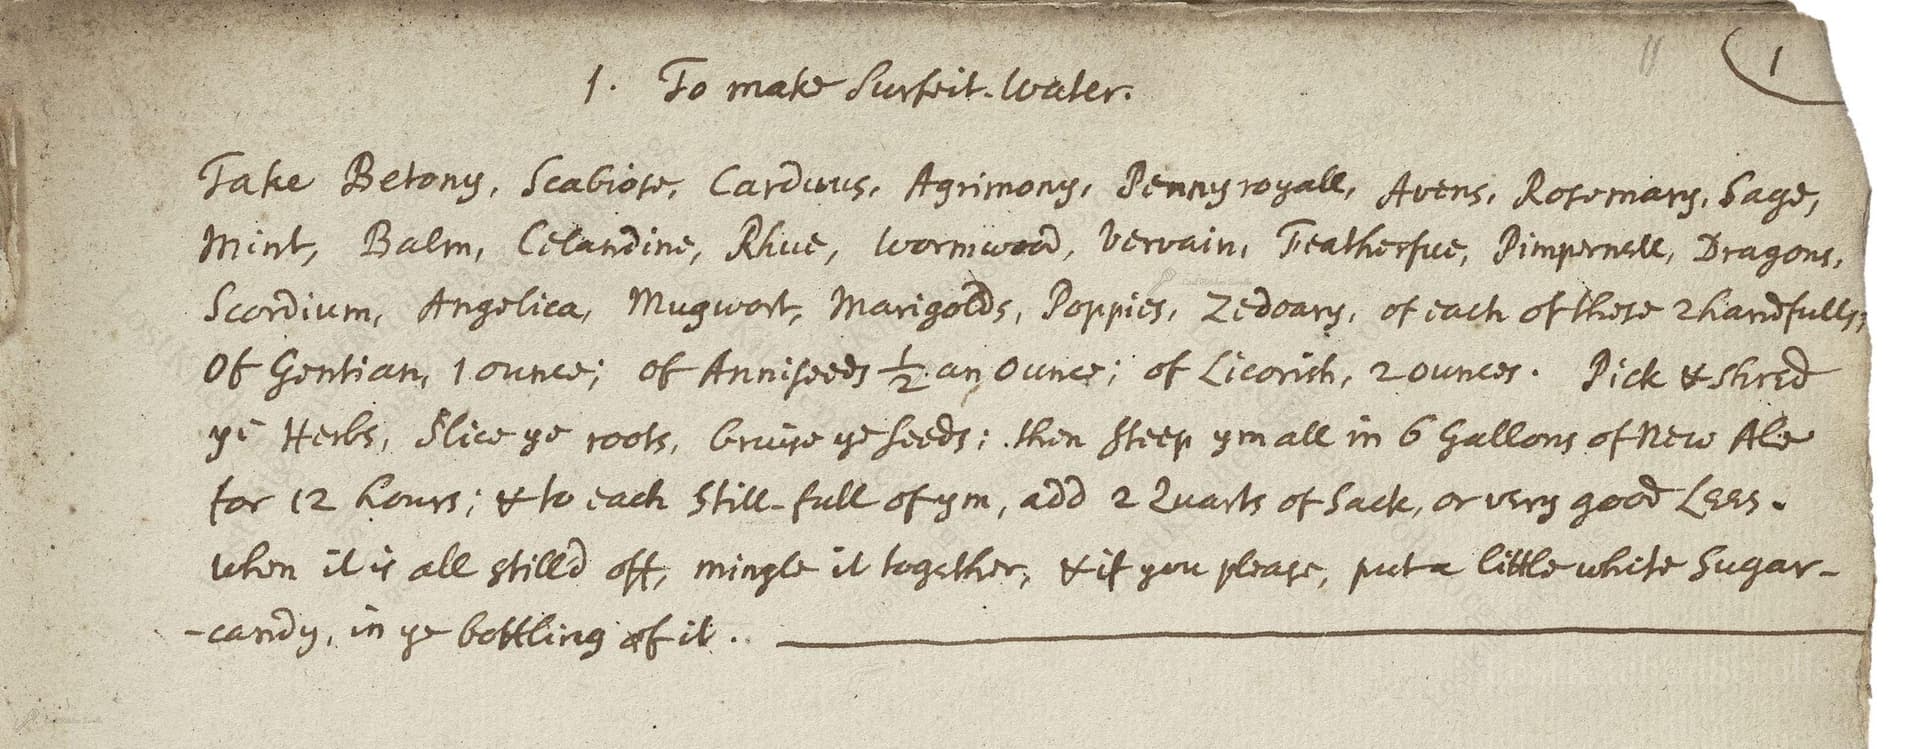 11 1
1. To make Surfeit-Water.
Take Betony, Scabiose, Carduus, Agrimony, Pennyroyall, Avens, Rosemary, Sage,
Mint, Balm, Celandine, Rhue, Wormwood, Vervain, Featherfue, Pimpernell, Dragons,
Scordium, Angelica, Mugwort, Marigolds, Poppies, Zedoary, of each of these 2 handfulls;
Of Gentian, 1 ounce; of Anniseeds ½ an Ounce; of Licorish, 2 ounces. Pick & shred
ye Herbs, Slice ye roots, bruise ye seeds; then steep ym all in 6 Gallons of New Ale
for 12 hours; & to each Still-full of ym, add 2 Quarts of Sack, or very good Lees.
when it is all still'd off, mingle it together, & if you please, put a little white Sugar-
-candy, in ye bottling of it.